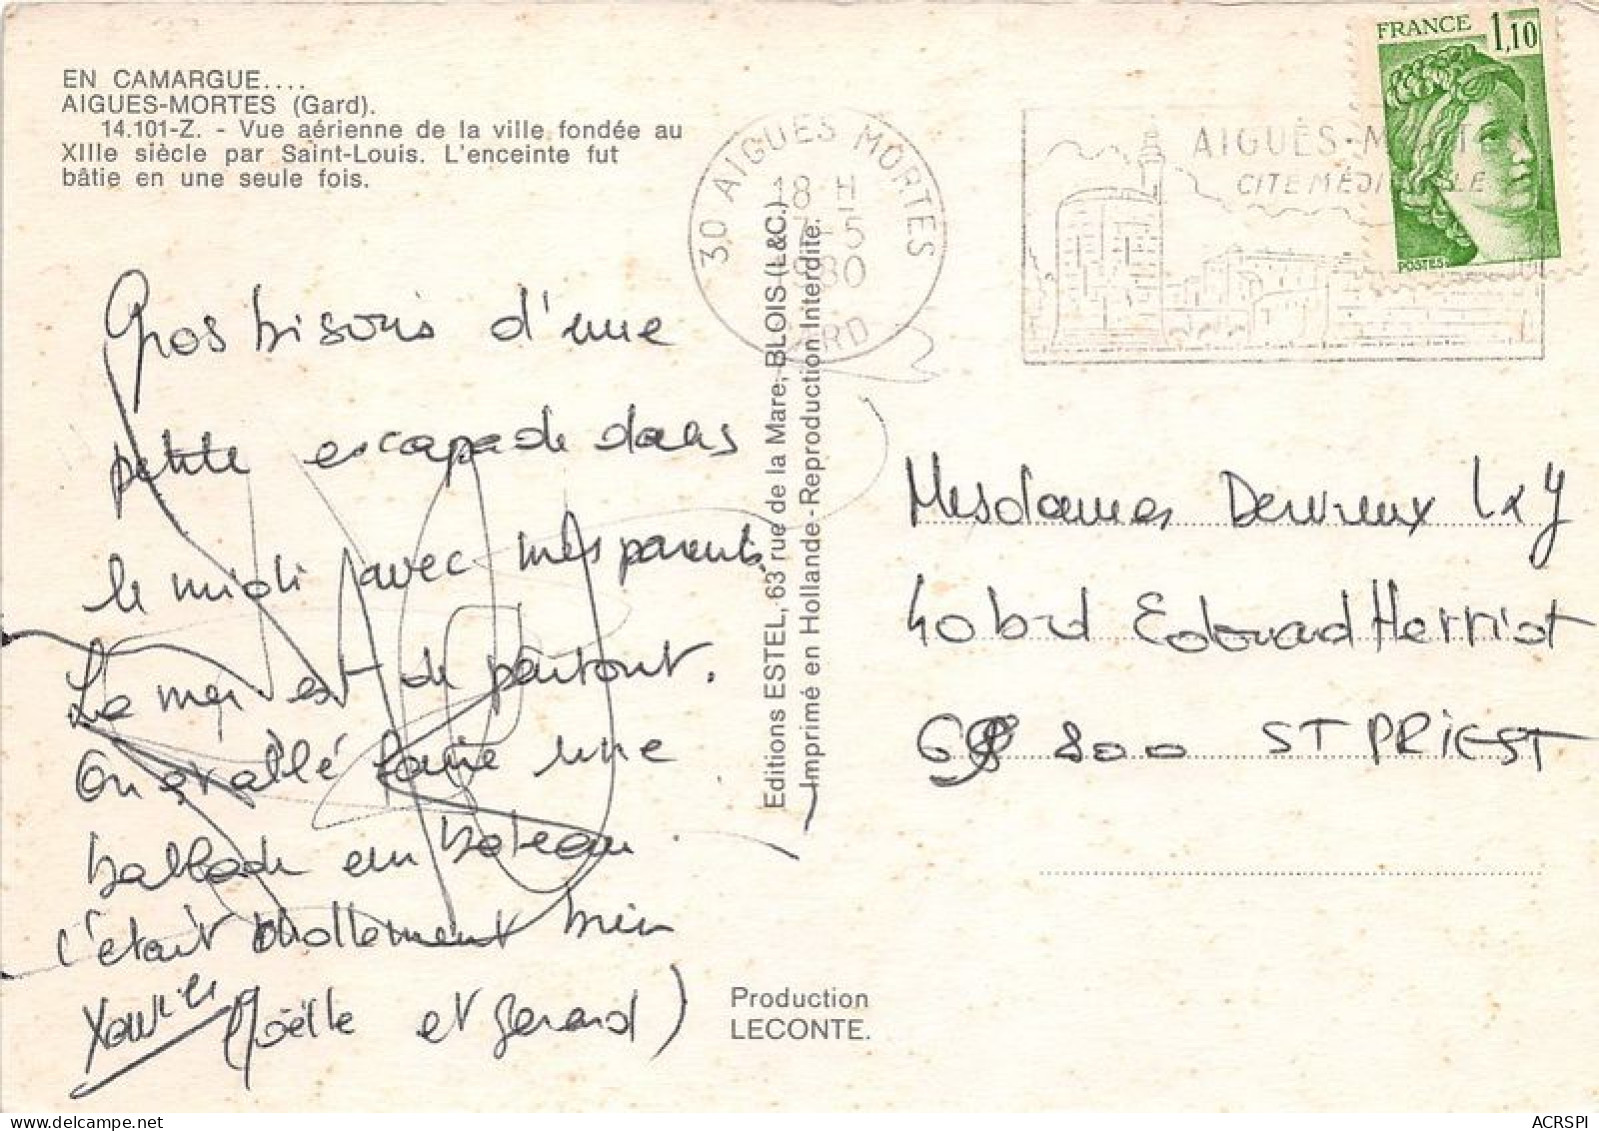 EN CAMARGUE....
AIGUES-MORTES (Gard).
14.101-Z. - Vue aérienne de la ville fondée au
XIIIe siècle par Saint-Louis. L'enceinte fut
bâtie en une seule fois.
FRANCE 1,10
POSTES
30 AIGUES MORTES
18 H
7-5
1980
GARD
AIGUES-M
CITE MÉDI LE
Gros bisous d'une
petite escapade dans
le midi avec mes parents.
La mer est de partout.
On est allé faire une
ballade en bateau.
C'était follement bien
(Joëlle et Gérard)
Editions ESTEL, 63 rue de la Mare, BLOIS (L&C.)
Imprimé en Hollande - Reproduction Interdite.
Mesdames Devreux
40 bvd Edouard Herriot
69 800 ST PRIEST
Production
LECONTE.
ACRSPI